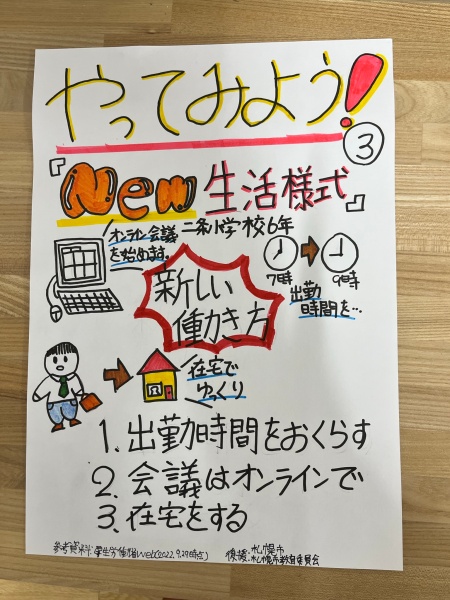 やってみよう!
③
『New 生活様式』
二条小学校6年
オンライン会議
を始めます。
7時
9時
出勤
時間を…
新しい
働き方
在宅で
ゆっくり
1. 出勤時間をおくらす
2. 会議はオンラインで
3. 在宅をする
参考資料:厚生労働省Web(2022.9.29時点)
後援:札幌市
・札幌市教育委員会